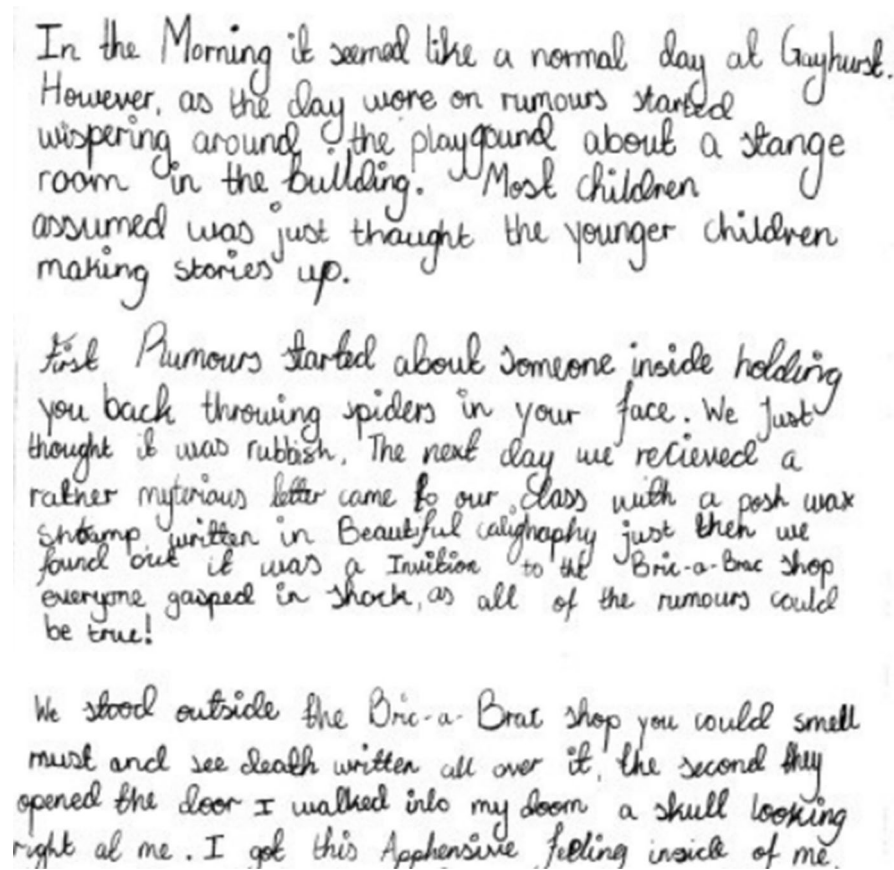 In the Morning it seemed like a normal day at Gayhurst.
However, as the day wore on rumours started
wispering around the playgound about a stange
room in the building. Most children
assumed was just thought the younger children
making stories up.
First Rumours started about someone inside holding
you back throwing spiders in your face. We Just
thought it was rubbish. The next day we recieved a
rather myterious letter came to our class with a posh wax
stamp written in Beautiful calighaphy just then we
found out it was a Invition to the Bric-a-Brac shop
everyone gasped in shock, as all of the rumours could
be true!
We stood outside the Bric-a-Brac shop you could smell
must and see death written all over it, the second they
opened the door I walked into my doom a skull looking
right at me. I got this Apphensive feeling inside of me.